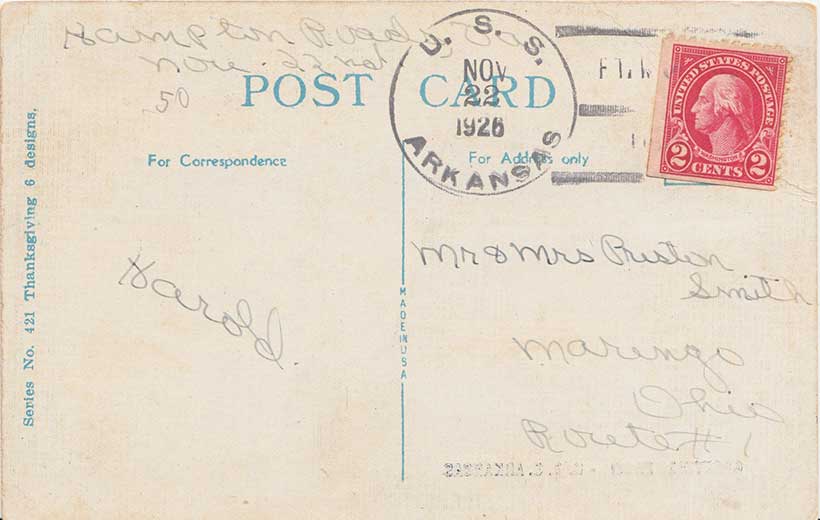 Hampton Roads, Va
Nove. 22nd
50
POST CARD
U. S. S.
NOV
22
1926
ARKANSAS
UNITED STATES POSTAGE
WASHINGTON
2 CENTS 2
For Correspondence
For Address only
Series No. 421 Thanksgiving 6 designs.
Harold.
MADE IN USA
Mr & Mrs Preston
Smith
Marengo
Ohio
Route # 1
U.S.S. ARKANSAS